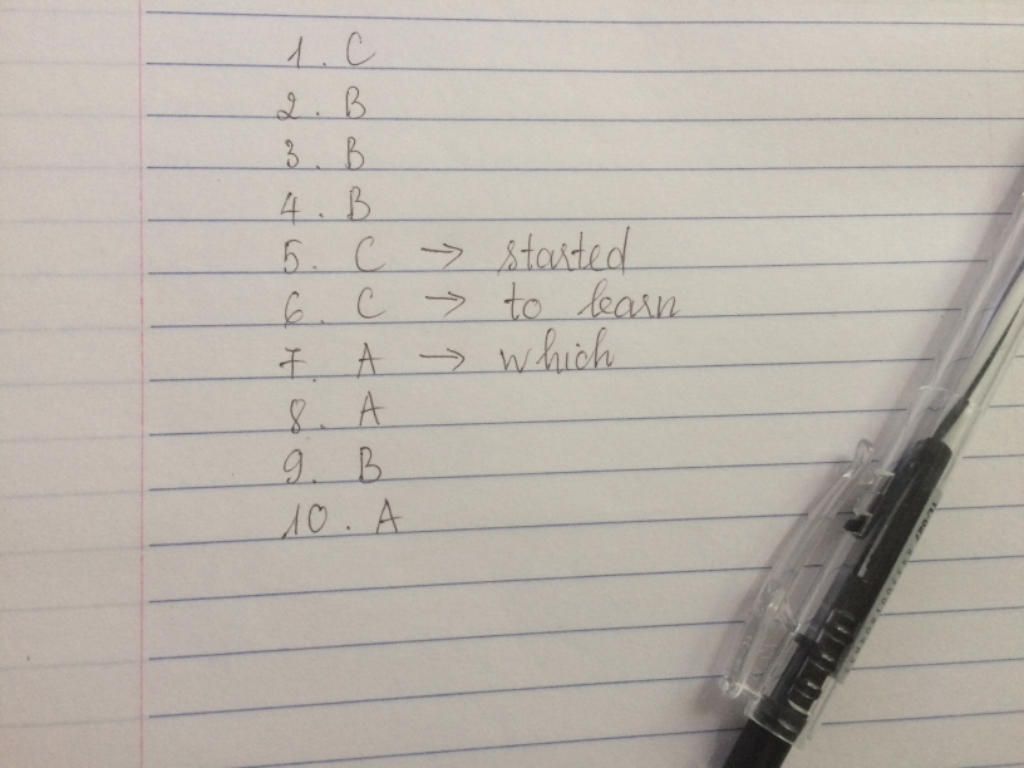 1. C
2. B
3. B
4. B
5. C → started
6. C → to learn
7. A → which
8. A
9. B
10. A